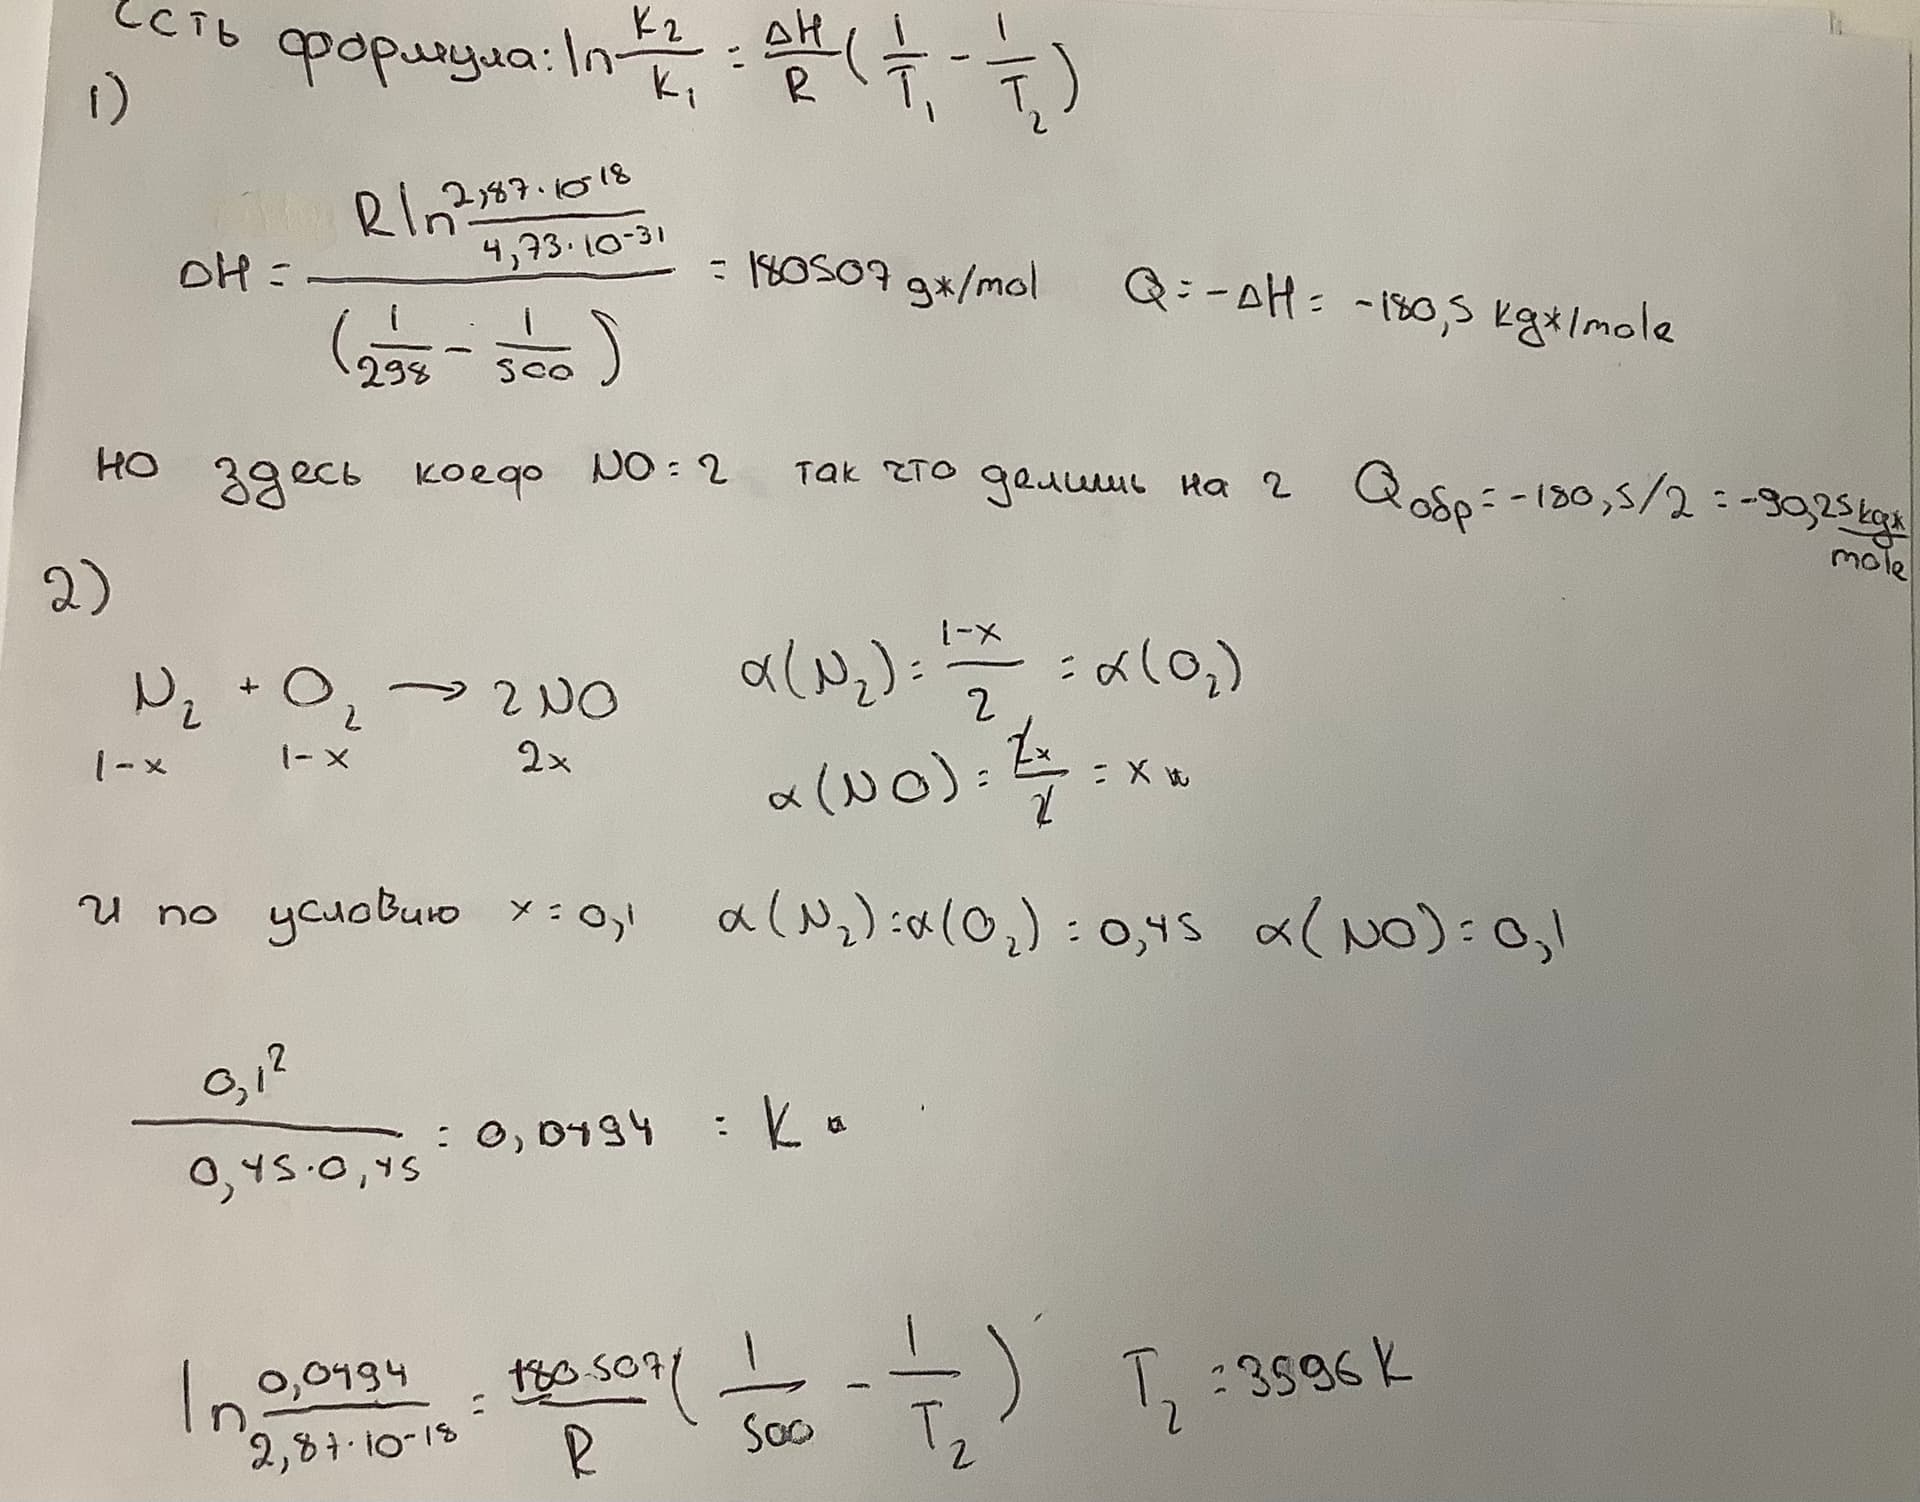 Есть формула: ln K₂/K₁ = ΔH/R (1/T₁ - 1/T₂)
1)
ΔH = R ln (2,87·10⁻¹⁸ / 4,73·10⁻³¹) / (1/298 - 1/500) = 180507 gж/mol Q = -ΔH = -180,5 kgж/mole
но здесь коедо NO = 2 так что делишь на 2 Qобр = -180,5/2 = -90,25 kgж/mole
2)
N₂ + O₂ → 2NO α(N₂) = (1-x)/2 = α(O₂)
1-x 1-x 2x α(NO) = 2x/2 = x
и по условию x = 0,1 α(N₂) = α(O₂) = 0,45 α(NO) = 0,1
0,1² / 0,45·0,45 = 0,0494 = K
ln (0,0494 / 2,87·10⁻¹⁸) = 180507/R (1/500 - 1/T₂) T₂ = 3596 K